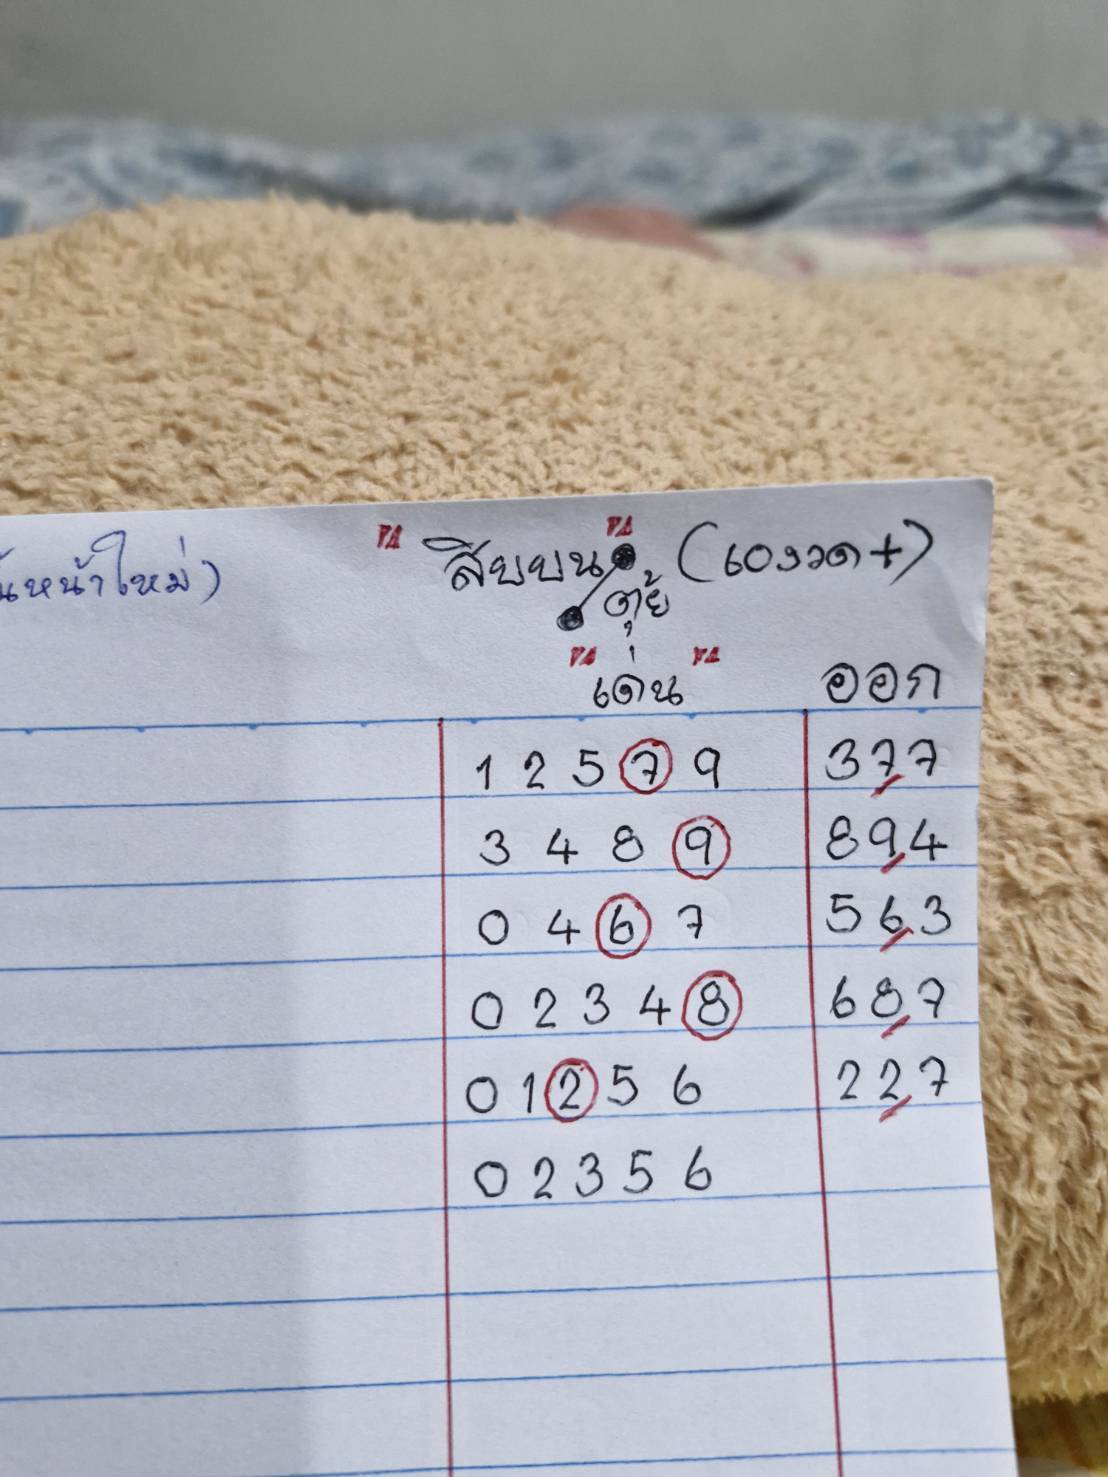 นหน้าใหม่)
สิบบน (10งวด+)
ตุ้ย
เด่น ออก
1 2 5 7 9 377
3 4 8 9 894
0 4 6 7 563
0 2 3 4 8 687
0 1 2 5 6 227
0 2 3 5 6